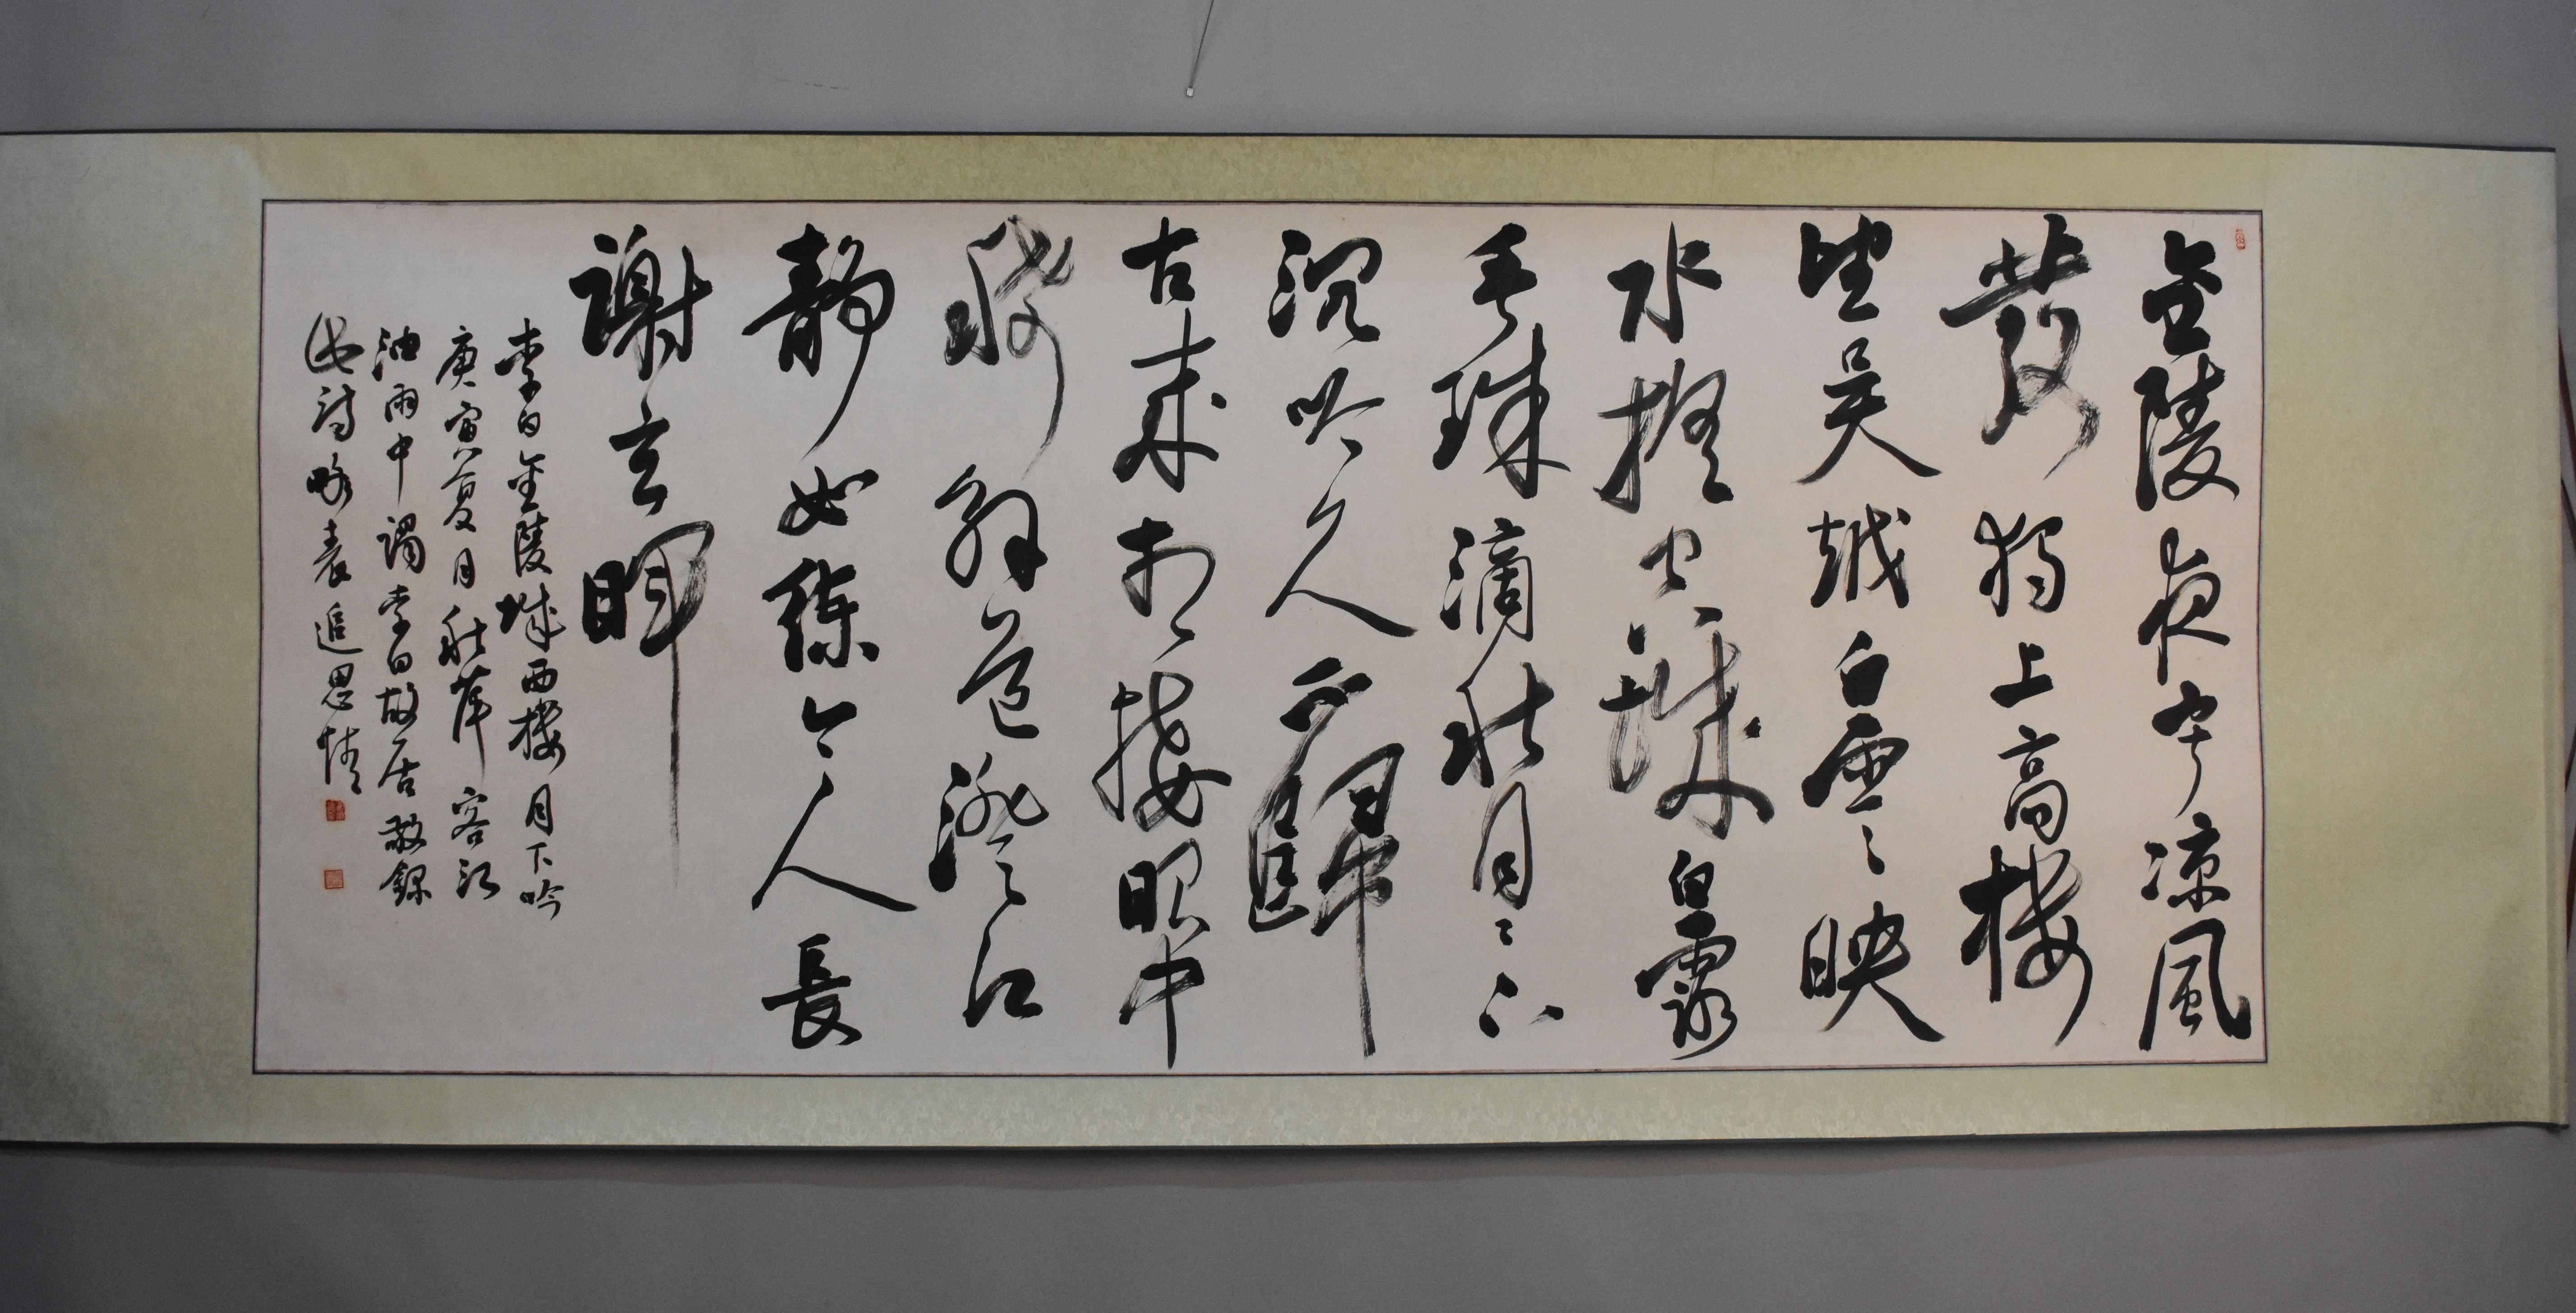 金陵夜寂凉風
發獨上高樓
望吳越白雲映
水摇空城白露
垂珠滴秋月々下
沉吟久不歸
古来相接眼中
稀解道澄江
靜如練令人長
謝玄暉
李白金陵城西樓月下吟
庚寅夏月秋萍客江
油雨中謁李白故居敬錄
此詩略表追思情